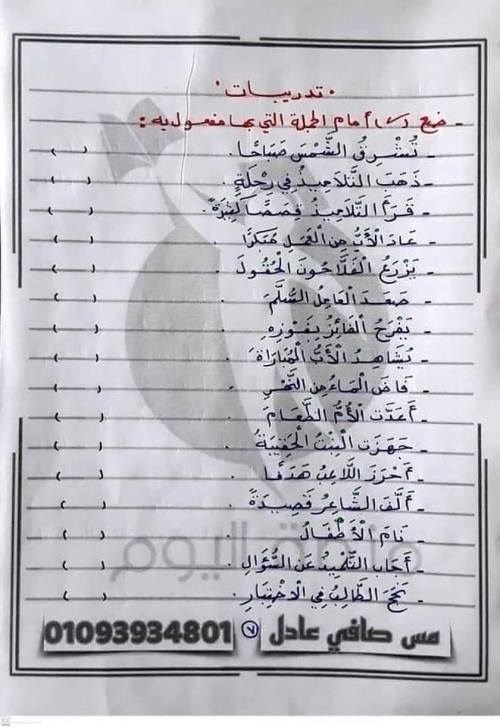 تدريبات
- ضع (✓) أمام الجملة التي بها مفعول به :
- تُشْرِقُ الشَّمْسُ صَبَاحًا. ( )
- ذَهَبَ التَّلَامِيذُ فِي رِحْلَةٍ. ( )
- قَرَأَ التَّلَامِيذُ قِصَصًا كَثِيرَةً. ( )
- عَادَ الْأَبُ مِنَ الْعَمَلِ مُبَكِّرًا. ( )
- يَزْرَعُ الْفَلَّاحُونَ الْحُقُولَ. ( )
- صَعِدَ الْعَامِلُ السُّلَّمَ. ( )
- يَفْرَحُ الْفَائِزُ بِفَوْزِهِ. ( )
- يُشَاهِدُ الْأَبُ الْمُبَارَاةَ. ( )
- فَاضَ الْمَاءُ مِنَ النَّهْرِ. ( )
- أَعَدَّتِ الْأُمُّ الطَّعَامَ. ( )
- جَهَّزَتِ الْبِنْتُ الْحَقِيبَةَ. ( )
- أَحْرَزَ اللَّاعِبُ هَدَفًا. ( )
- أَلَّفَ الشَّاعِرُ قَصِيدَةً. ( )
- نَامَ الْأَطْفَالُ. ( )
- أَجَابَ التِّلْمِيذُ عَنِ السُّؤَالِ. ( )
- نَجَحَ الطَّالِبُ فِي الِاخْتِبَارِ. ( )
مس صافي عادل ٧ 01093934801